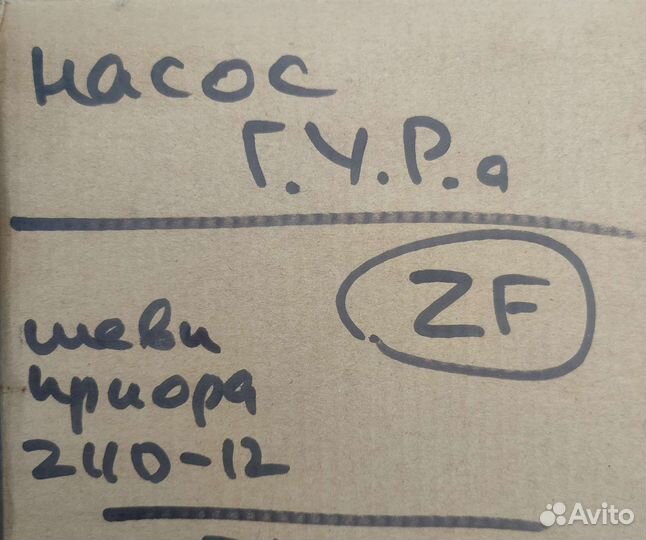 насос
Г.У.Р.а
ZF
шеви
приора
2110-12
Avito